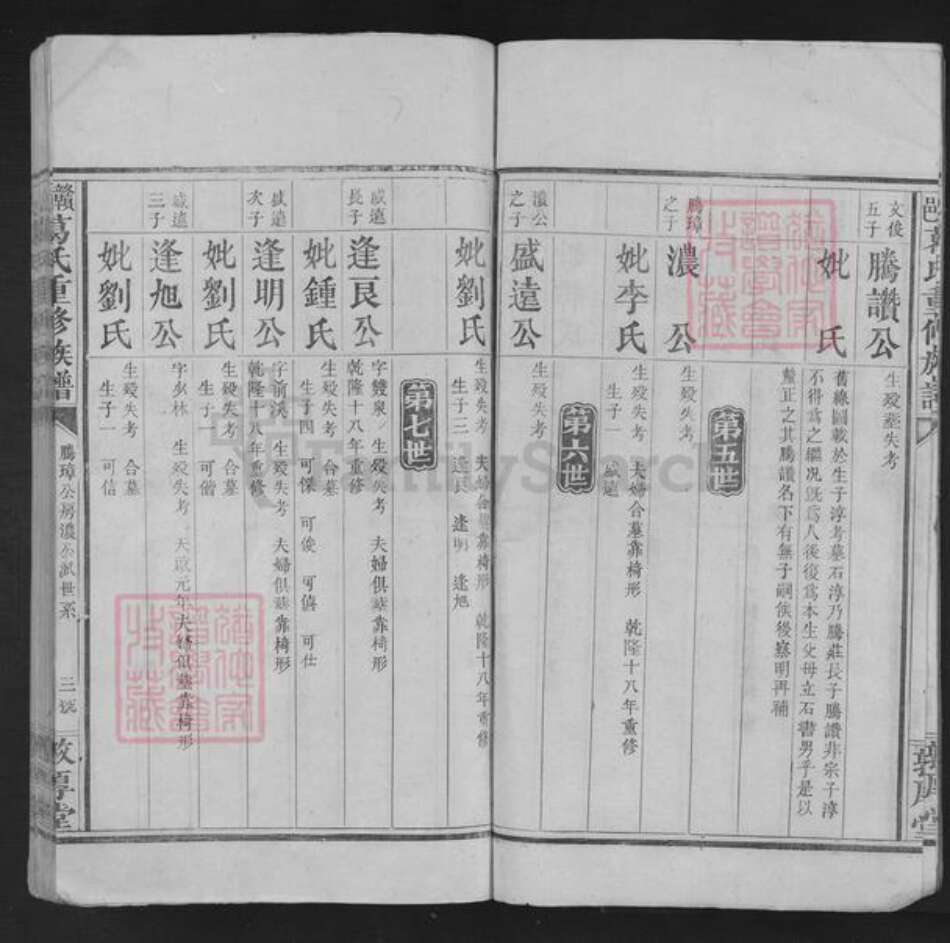 文俊五子
騰讚公
生殁塟失考
妣氏
舊綠圖載於生子淳考墓石淳乃騰莊長子騰讚非宗子淳
不得爲之繼况旣爲人後復爲本生父母立石書男乎是以
釐正之其騰讚名下有無子嗣俟後察明再補
第五世
騰璋之子
濃公
生殁失考
妣李氏
生殁失考 夫婦合墓靠椅形 乾隆十八年重修
生子一 盛遠
第六世
濃公之子
盛遠公
生殁失考
妣劉氏
生殁失考 夫婦合墓靠椅形 乾隆十八年重修
生子三 逢良 逢明 逢旭
第七世
盛遠長子
逢良公
字雙泉 生殁失考 夫婦俱塟靠椅形
乾隆十八年重修
妣鍾氏
生殁失考 合墓
生子四 可傑 可俊 可僖 可仕
盛遠次子
逢明公
字前溪 生殁失考 夫婦俱塟靠椅形
乾隆十八年重修
妣劉氏
生殁失考 合墓
生子一 可偕
盛遠三子
逢旭公
字少林 生殁失考 天啟元年夫婦俱塟靠椅形
妣劉氏
生殁失考 合墓
生子一 可信
贛葛氏重修族譜
騰璋公房濃公派世系
三號
敦厚堂
FamilySearch